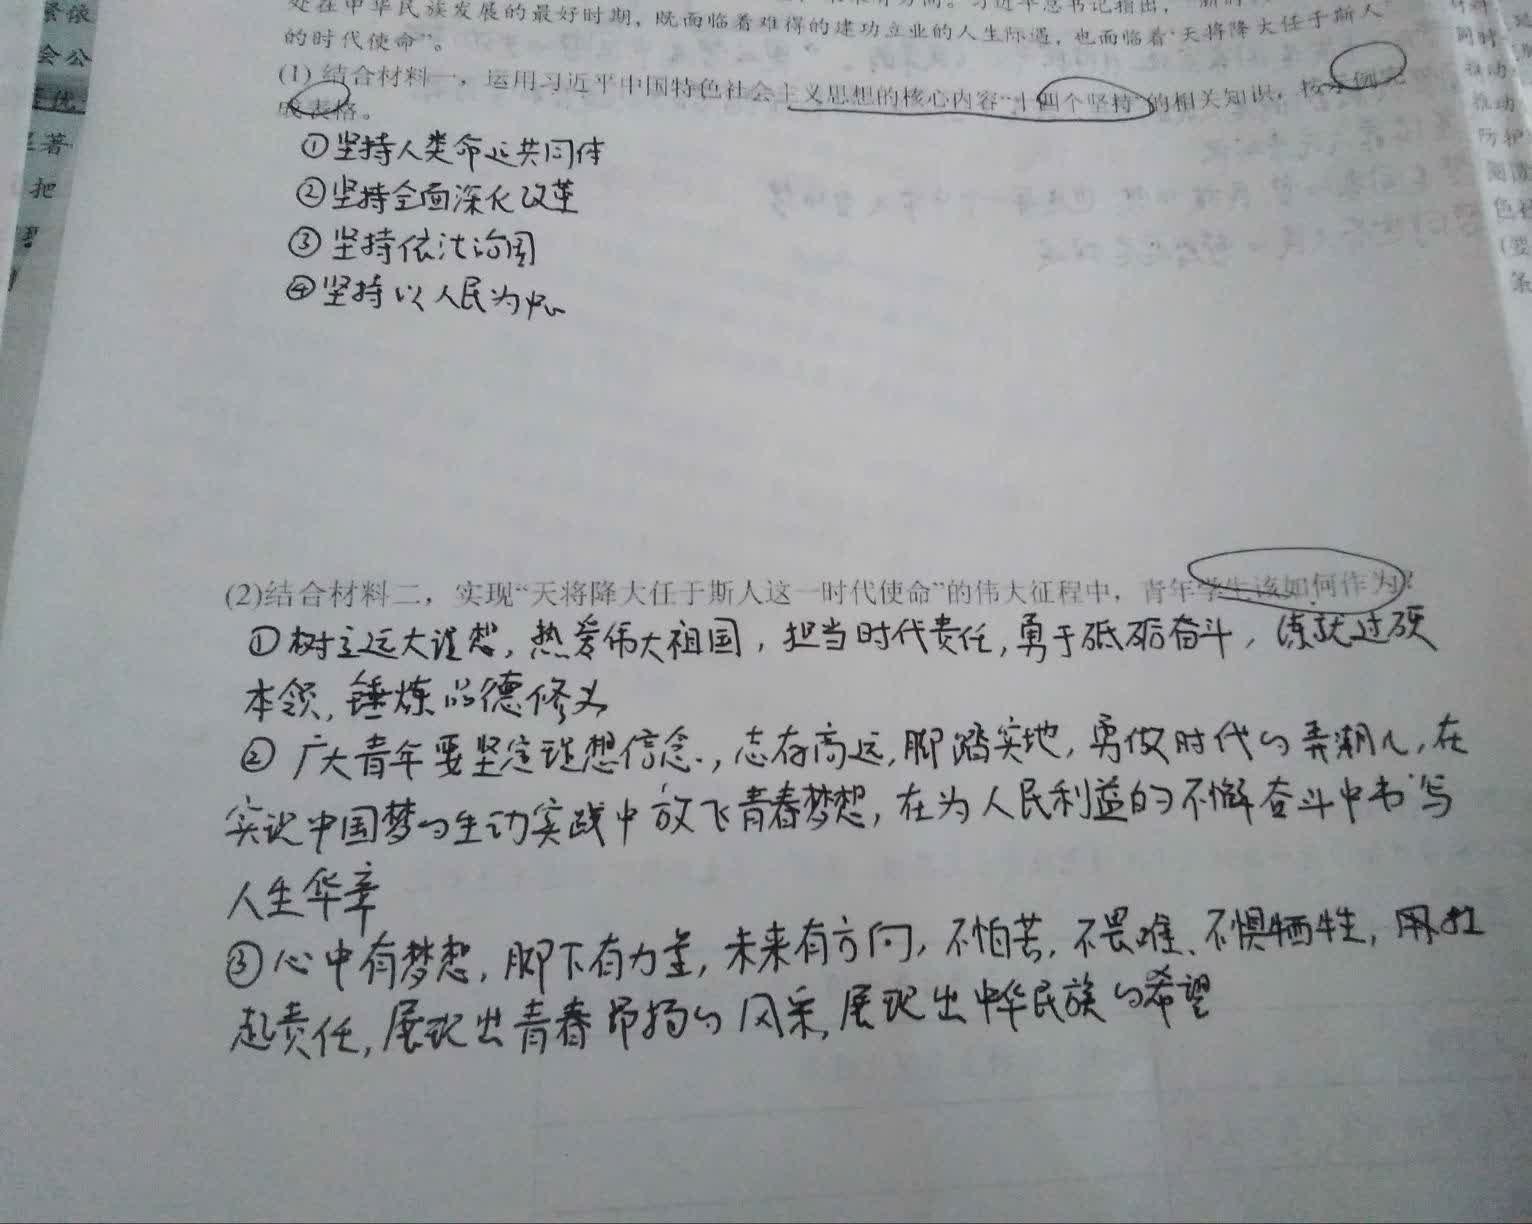 处在中华民族发展的最好时期，既面临着难得的建功立业的人生际遇，也面临着“天将降大任于斯人”
的时代使命”。
(1) 结合材料一，运用习近平中国特色社会主义思想的核心内容“十四个坚持”的相关知识，按示例完
成表格。
①坚持人类命运共同体
②坚持全面深化改革
③坚持依法治国
④坚持以人民为中心
(2)结合材料二，实现“天将降大任于斯人这一时代使命”的伟大征程中，青年学生该如何作为？
①树立远大理想，热爱伟大祖国，担当时代责任，勇于砥砺奋斗，练就过硬
本领，锤炼品德修为
②广大青年要坚定理想信念，志存高远，脚踏实地，勇做时代的弄潮儿，在
实现中国梦的生动实践中放飞青春梦想，在为人民利益的不懈奋斗中书写
人生华章
③心中有梦想，脚下有力量，未来有方向，不怕苦，不畏难、不惧牺牲，用扛
起责任，展现出青春昂扬的风采，展现出中华民族的希望
紧依
会公
著
把
同时
推动
防护
(要